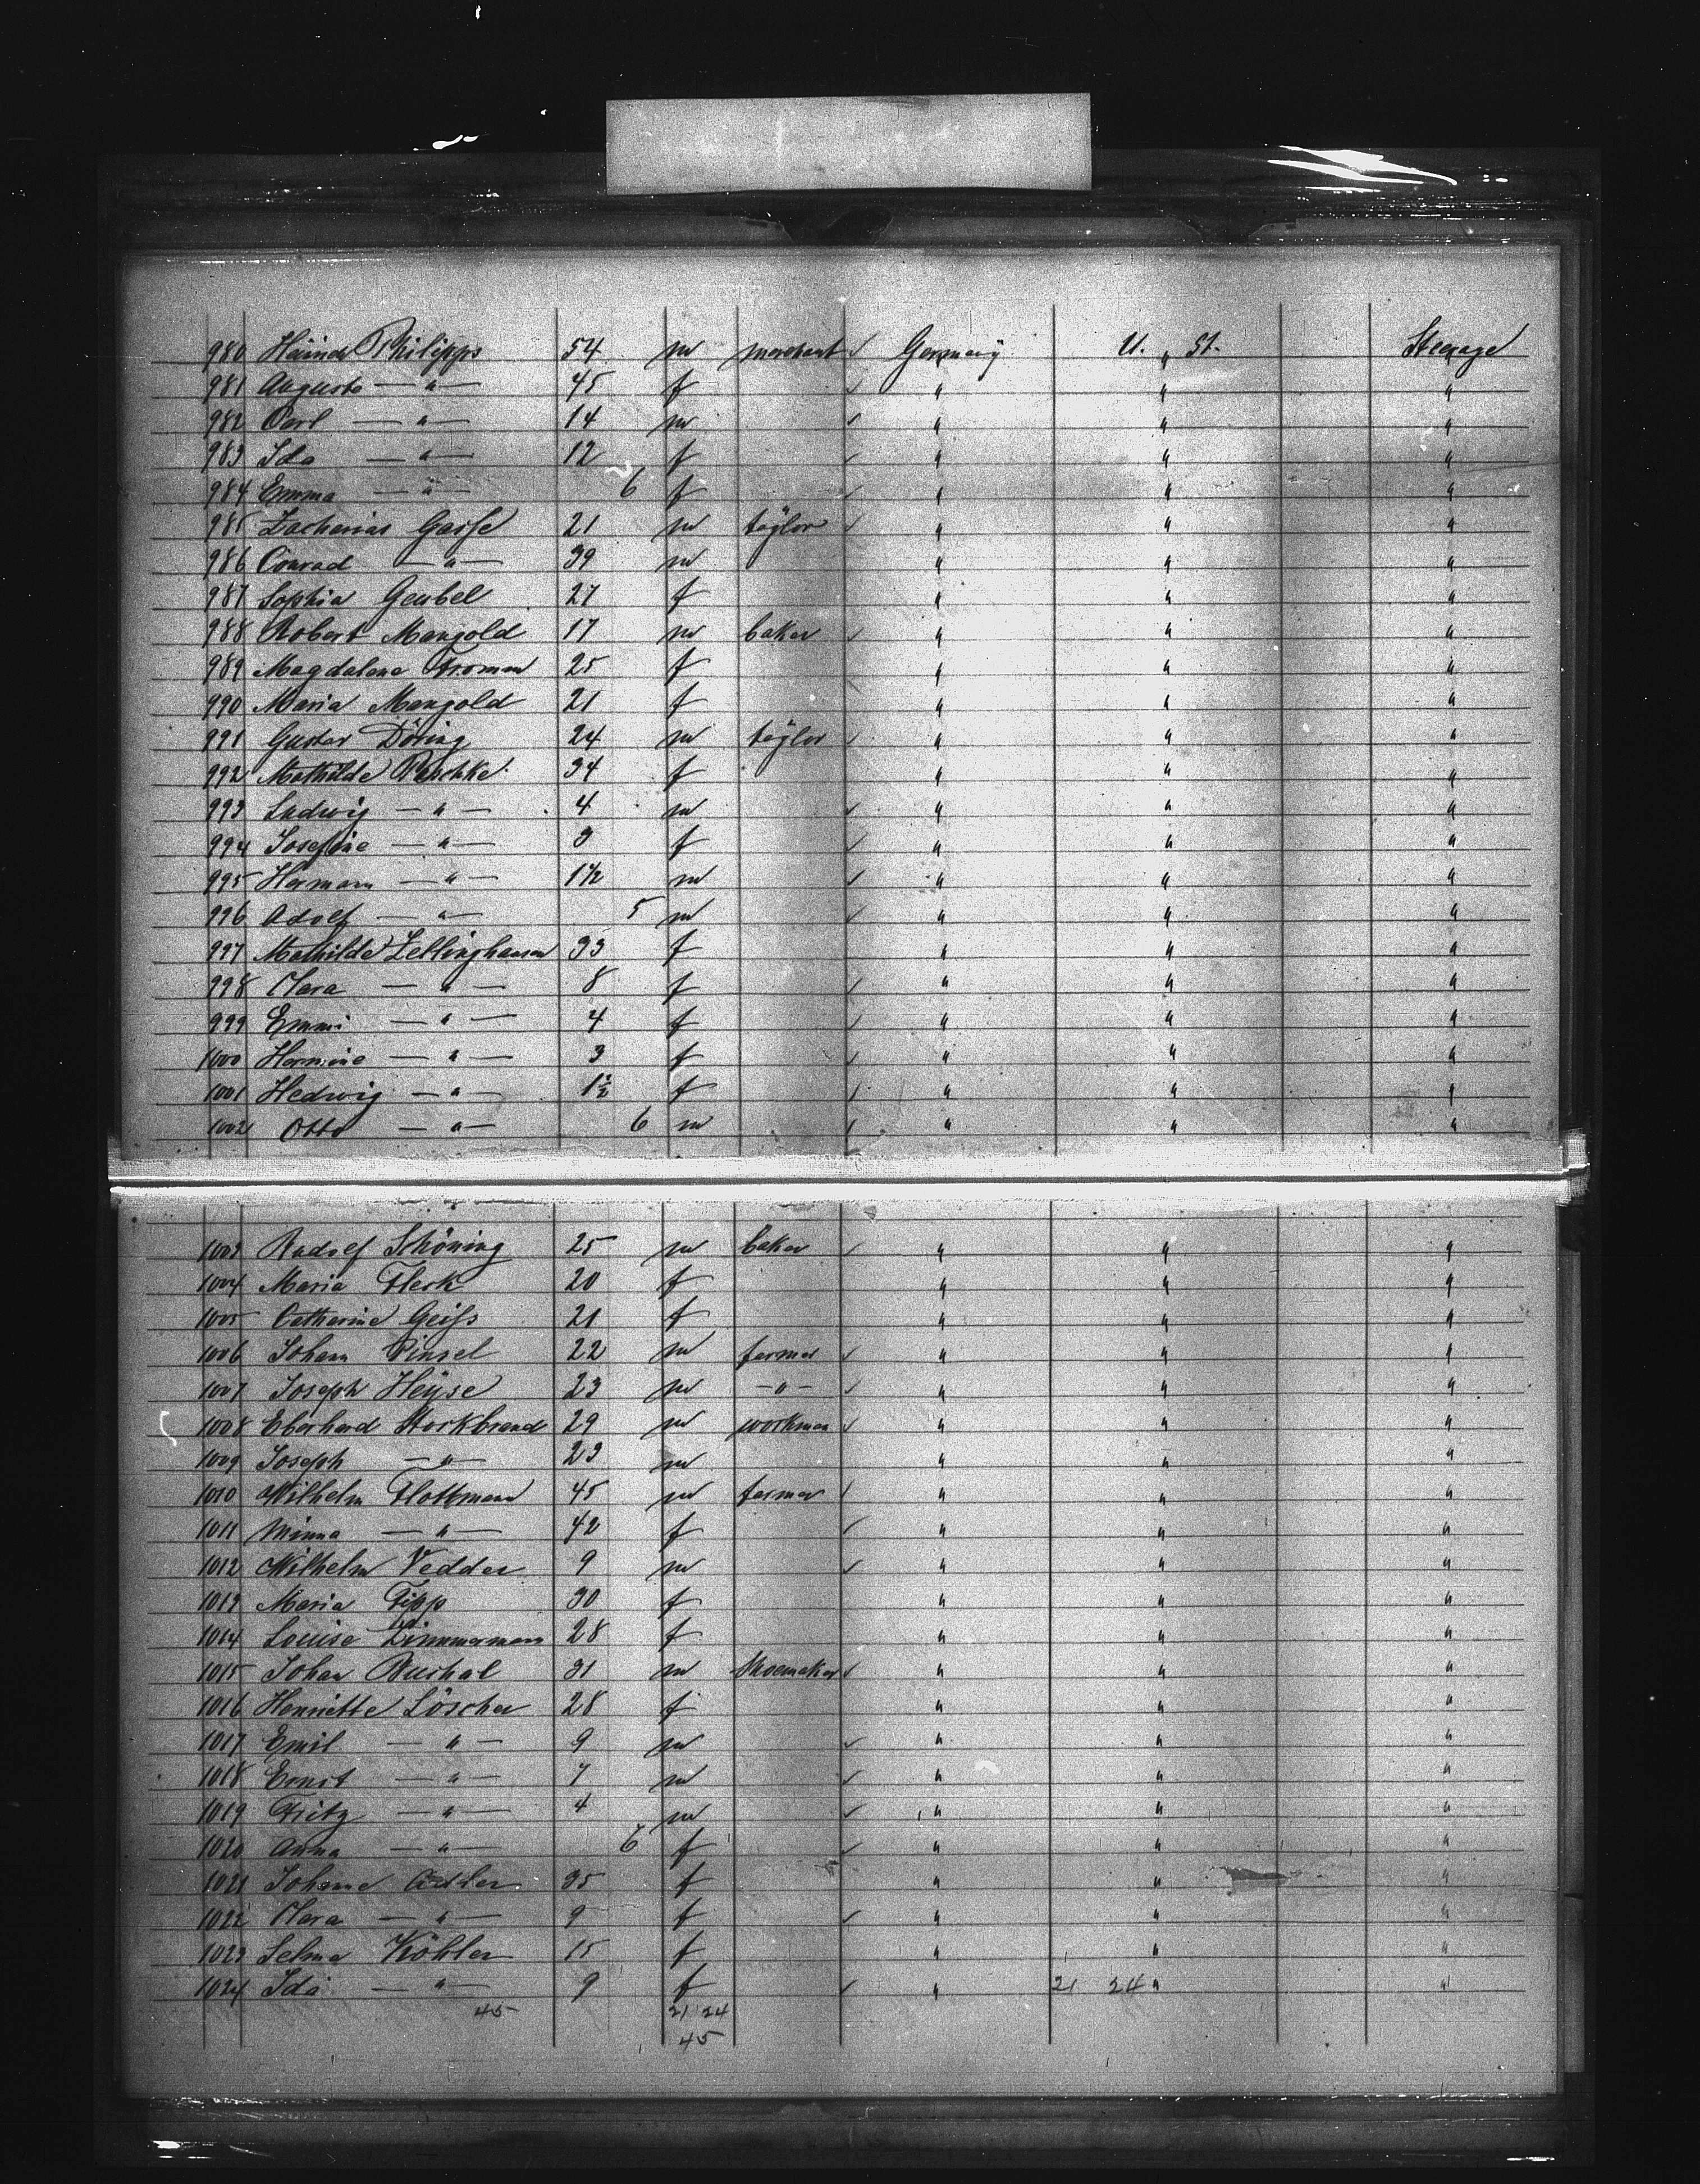 980 Heinr Philipps 54 m merchant ✓ Germany U. " St. Steerage
981 Auguste — " — 45 f ✓ " " "
982 Carl — " — 14 m ✓ " " "
983 Ida — " — 12 f ✓ " " "
984 Emma — " — 6 f ✓ " " "
985 Zacharias Gasse 21 m taylor ✓ " " "
986 Conrad — " — 39 m " " "
987 Sophia Geubel 27 f " " "
988 Robert Mangold 17 m baker ✓ " " "
989 Magdalena Fromm 25 f " " "
990 Maria Mangold 21 f " " "
991 Gustav Döring 24 m taylor ✓ " " "
992 Mathilde Paschke 34 f " " "
993 Ludwig — " — 4 m ✓ " " "
994 Josefine — " — 3 f ✓ " " "
995 Hermann — " — 1½ m ✓ " " "
996 Adolf — " — 5 m ✓ " " "
997 Mathilde Zellinghausen 33 f " " "
998 Clara — " — 8 f ✓ " " "
999 Emmi — " — 4 f ✓ " " "
1000 Hermine — " — 3 f ✓ " " "
1001 Hedwig — " — 1½ f ✓ " " "
1002 Otto — " — 6 m ✓ " " "
1003 Rudolf Schöning 25 m baker ✓ " " "
1004 Maria Fleck 20 f " " "
1005 Catharine Geiss 21 f " " "
1006 Johann Pinsel 22 m farmer ✓ " " "
1007 Joseph Heyse 23 m — " — ✓ " " "
1008 Eberhard Storkbrand 29 m workman ✓ " " "
1009 Joseph — " — 23 m " " "
1010 Wilhelm Flottmann 45 m farmer ✓ " " "
1011 Minna — " — 42 f ✓ " " "
1012 Wilhelm Vedder 9 m ✓ " " "
1013 Maria Tipp 30 f " " "
1014 Louise Zimmermann 28 f " " "
1015 Johan 31 m Shoemaker ✓ " " "
1016 Henriette Löscher 28 f " " "
1017 Emil — " — 9 m ✓ " " "
1018 Ernst — " — 7 m ✓ " " "
1019 Fritz — " — 4 m ✓ " " "
1020 Anna — " — 6 f ✓ " " "
1021 Johanne Adler 35 f " " "
1022 Clara — " — 9 f ✓ " " "
1023 Selma Köhler 15 f " " "
1024 Ida — " — 9 f ✓ " 21 24 " "
45 21 24
45